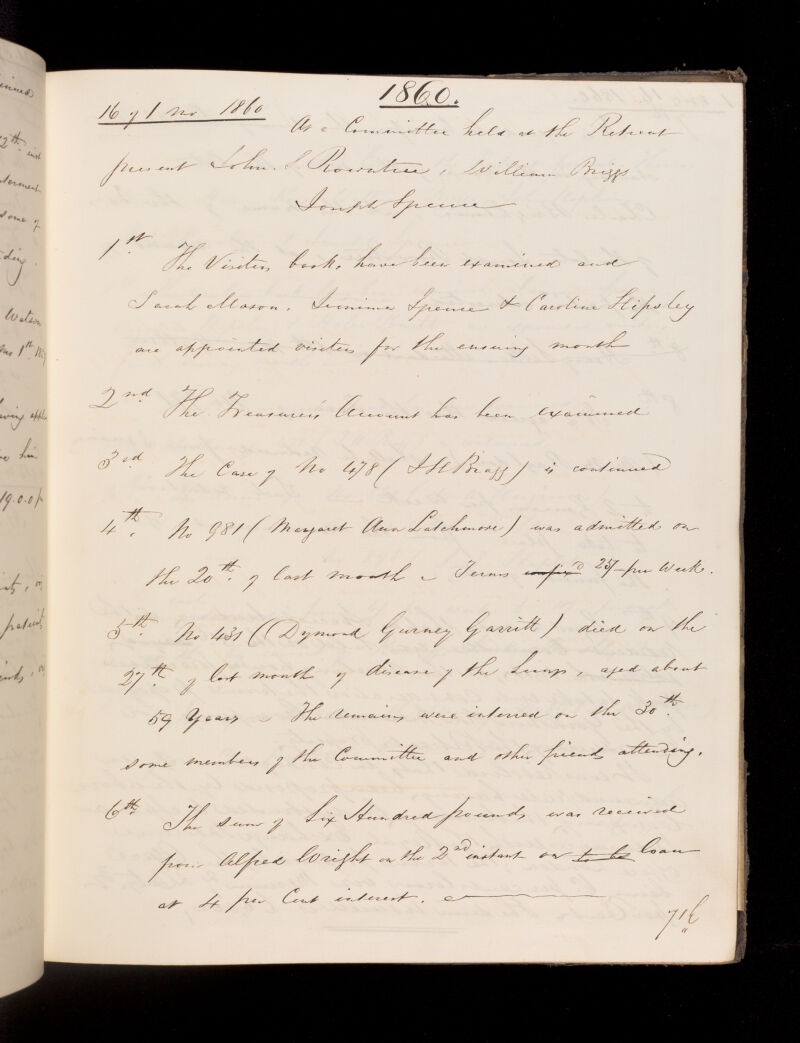 1860.
16 of 1 mo 1860
At a Committee held at the Retreat
present John S Rowntree, William Briggs
Joseph Spence
1st The Visitors books have been examined and
Sarah Mason, Jemima Spence & Caroline Hipsley
are appointed visitors for the ensuing month
2nd The Treasurer's Account has been examined
3rd The Case of No 478 ( Bragg) is continued
4th. No 981 (Margaret Ann Latchmore) was admitted on
the 20th. of last month Terms 25/- per Week.
5th No 431 (Dymond Gurney Garritt) died on the
27th. of last month of disease of the Lungs, aged about
59 Years The remains were interred on the 30th.
some members of the Committee and other friends attending.
6th. The sum of Six Hundred pounds was received
from Alfred Wright on the 2nd instant on to be loan
at 4 per Cent interest.
7th
inst
some of
ding.
Watson